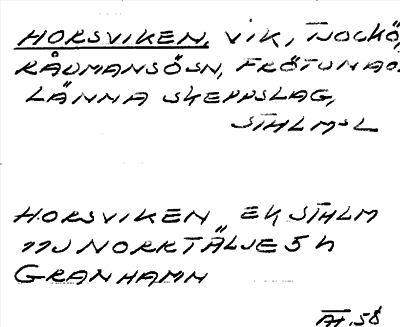 HORSVIKEN, VIK, TJOCKÖ,
RÅDMANSÖSN, FRÖTUNA O.
LÄNNA SKEPPSLAG,
STHLMSL
HORSVIKEN, EK STHLM
11J NORRTÄLJE 5 h
GRANHAMN
58